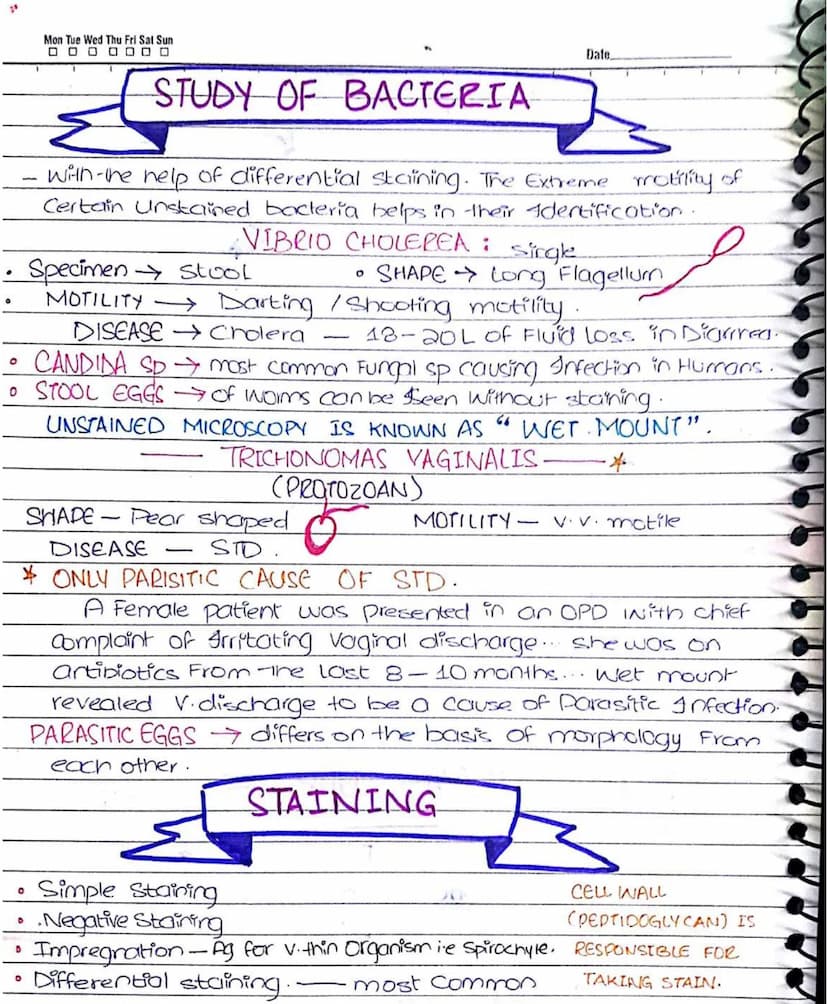 Mon Tue Wed Thu Fri Sat Sun
Date
STUDY OF BACTERIA
- With the help of differential staining. The Extreme motility of
Certain Unstained bacteria helps in their Identification.
VIBRIO CHOLEREA : Single
• Specimen → Stool • SHAPE → Long Flagellum
• MOTILITY → Darting / Shooting motility.
DISEASE → Cholera — 18-20L of Fluid Loss in Diarrrea.
• CANDIDA SP → most common Fungal sp causing Infection in Humans.
• STOOL EGGS → of worms can be seen without staining.
UNSTAINED MICROSCOPY IS KNOWN AS " WET MOUNT".
— TRICHONOMAS VAGINALIS — *
(PROTOZOAN)
SHAPE - Pear shaped MOTILITY - v.v. motile
DISEASE - STD.
* ONLY PARISITIC CAUSE OF STD.
A Female patient was presented in an OPD with chief
complaint of Irritating Vaginal discharge... she was on
antibiotics From the Last 8-10 months... wet mount
revealed V.discharge to be a cause of Parasitic Infection.
PARASITIC EGGS → differs on the basis of morphology From
each other.
STAINING
• Simple Staining CELL WALL
• .Negative Staining (PEPTIDOGLYCAN) IS
• Impregnation - Ag for v.thin Organism i.e Spirochyte. RESPONSIBLE FOR
• Differential staining. — most common TAKING STAIN.